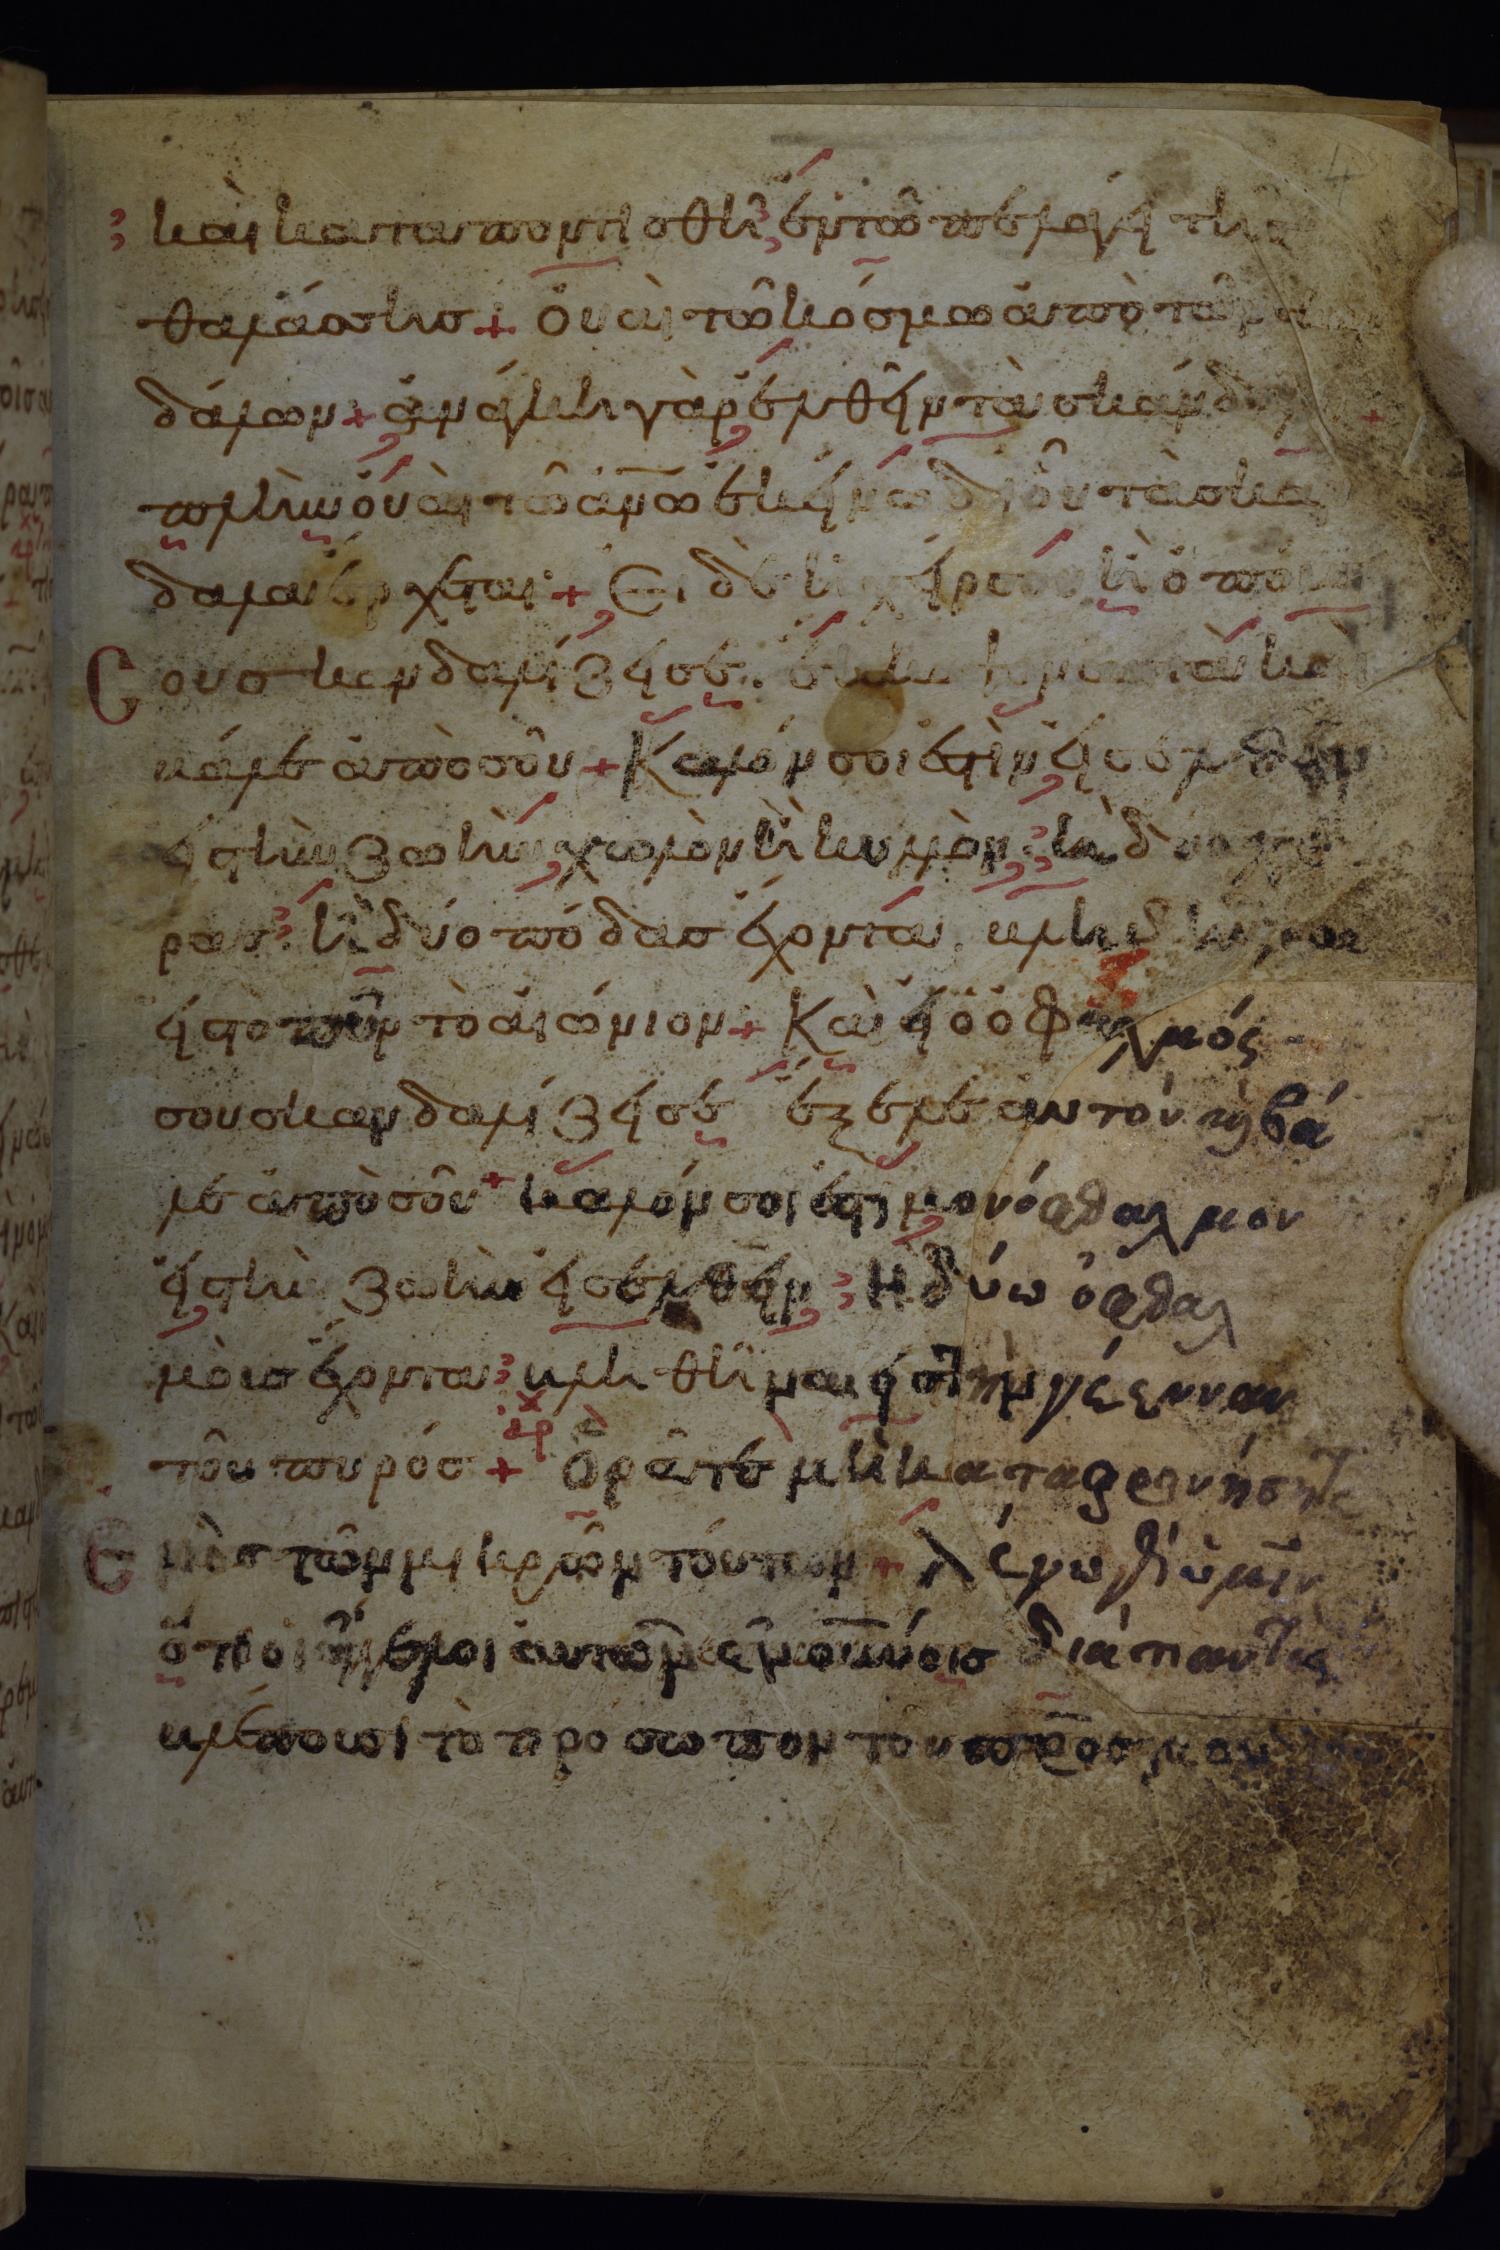 καὶ καταποντισθῆ ἐν τῶ πελάγει τῆς
θαλάσσης + ὀυαὶ τῶ κόσμω ἀπὸ τῶν
δάλων + ἀνάγκη γὰρ ἐλθεῖν τὰ σκάνδα
πλὴν ὀυαὶ τῶ ἀν̅ω ἐκείνω δι οὗ τὰ σκάν
δαλα ἔρχεται + Ει δὲ ἡ χείρ σου ἢ ὁ πούσ
σου σκανδαλίζει σε. ἔκκοψον αὐτὰ καὶ
βάλε ἀπὸ σοῦ + Καλόν σοι ἐστὶν εἰσελθεῖν
εἰς τὴν ζωὴν χωλὸν ἢ κυλλὸν ἢ δύο χεῖ
ρας ἢ δύο πόδας ἔχοντα βληθῆναι
εἰς τὸ πῦρ τὸ αἰώνιον + Καὶ εἰ ὁ ὀφθαλμός
σου σκανδαλίζει σε ἔξελε αυτον κὴ βά
λε ἀπὸ σοῦ + καλόν σοι ἐστὶ μονόφθαλμον
εἰς τὴν ζωὴν εἰσελθεῖν Η δύω ὀφθαλ
μοὺς ἔχοντα βληθῆναι εἰς τὴν γέενναν
τοῦ πυρός + Ὁρᾶτε μὴ καταφρονήσητε
ενὸς τῶν μικρῶν τούτων + λέγω δὲ ὑμῖν
ὅτι οἱ ἄγγελοι αυτῶν ἐν οὐ̅νοις διά παντὸς
βλέπουσι τὸ πρόσωπον του π̅ρος μου